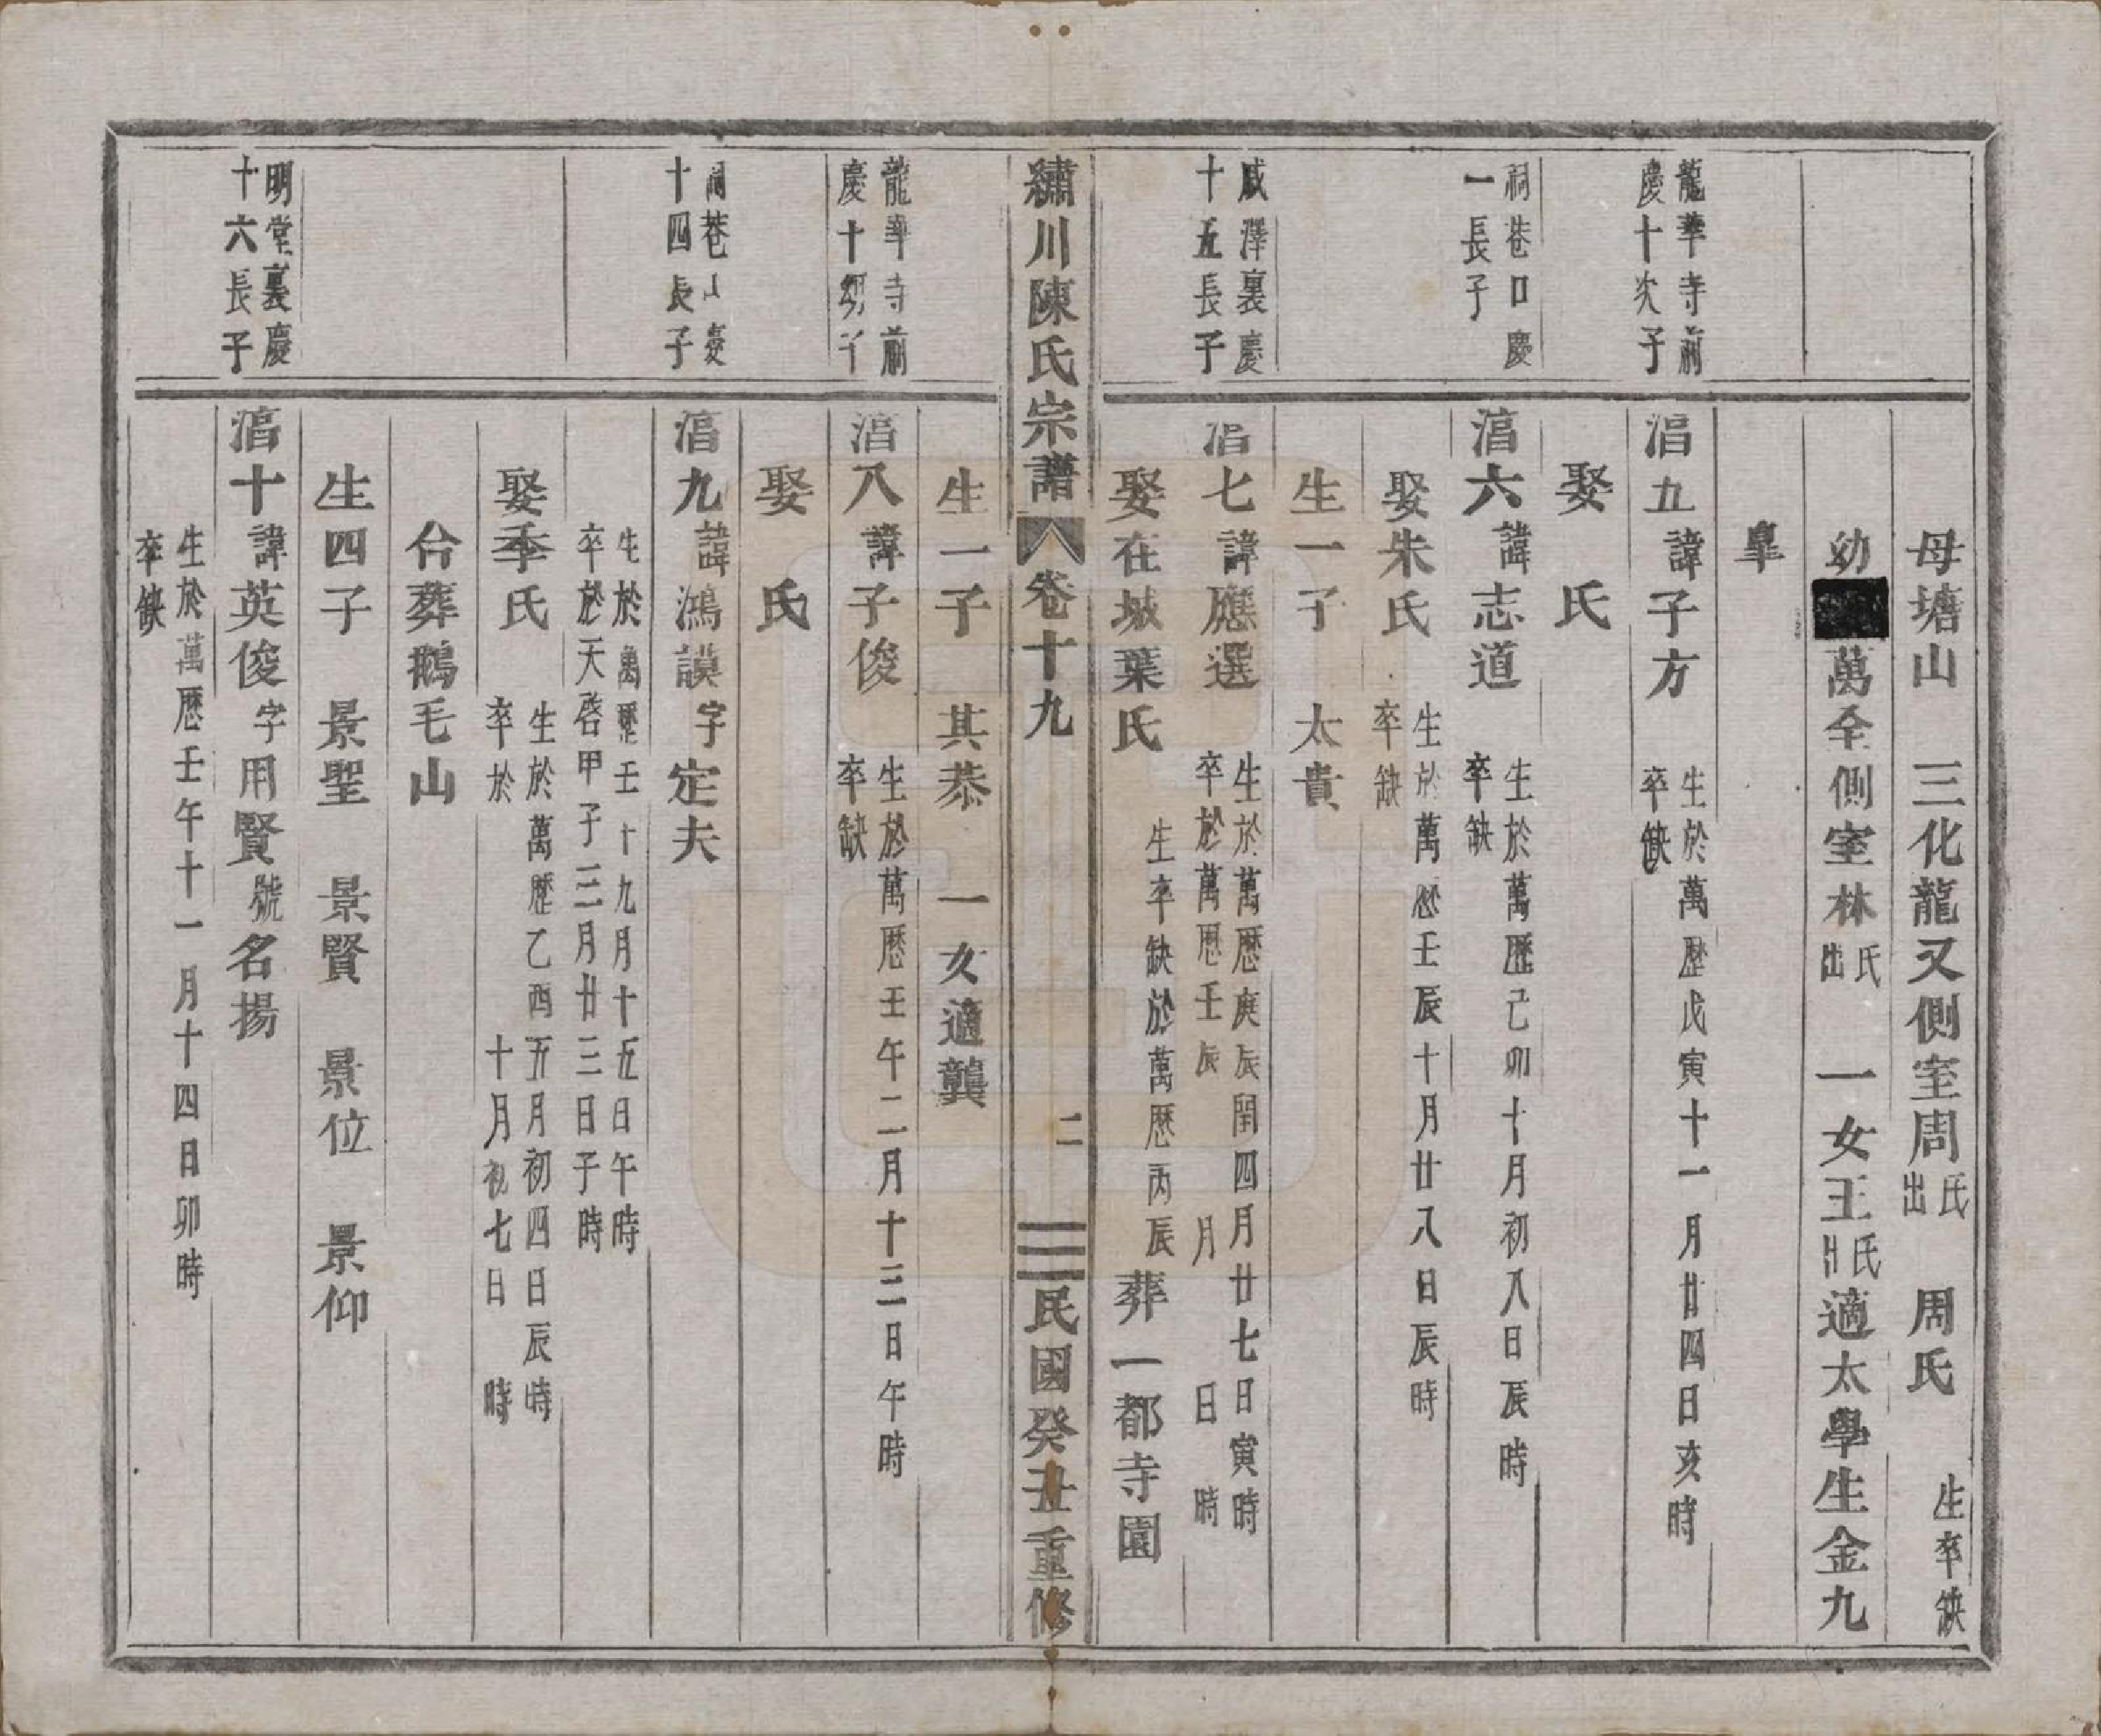 母塘山　三化龍又側室周氏出　周氏　生卒缺
幼　萬全側室林氏出　一女王氏出適太學生金九
臯
龍華寺前慶十次子
淐五諱子方　生於萬歷戊寅十一月廿四日亥時
卒缺
娶　氏
祠巷口慶一長子
淐六諱志道　生於萬歷己卯十月初八日辰時
卒缺
娶朱氏　生於萬歷壬辰十月廿八日辰時
卒缺
生一子　太貴
戚澤裏慶十五長子
淐七諱應選　生於萬歷庚辰閏四月廿七日寅時
卒於萬歷壬辰　月　日　時
娶在城葉氏　生卒缺於萬歷丙辰　葬一都寺園
繡川陳氏宗譜　卷十九　二　民國癸丑重修
生一子　其恭　一女適龔
龍華寺前慶十幼子
淐八諱子俊　生於萬歷壬午二月十三日午時
卒缺
娶　氏
祠巷口慶十四長子
淐九諱鴻謨字定夫
生於萬歷壬十九月十五日午時
卒於天啓甲子三月廿三日子時
娶季氏　生於萬歷乙酉五月初四日辰時
卒於　十月初七日　時
合葬鵝毛山
生四子　景聖　景賢　景位　景仰
明堂裏慶十六長子
淐十諱英俊字用賢號名揚
生於萬歷壬午十一月十四日卯時
卒缺